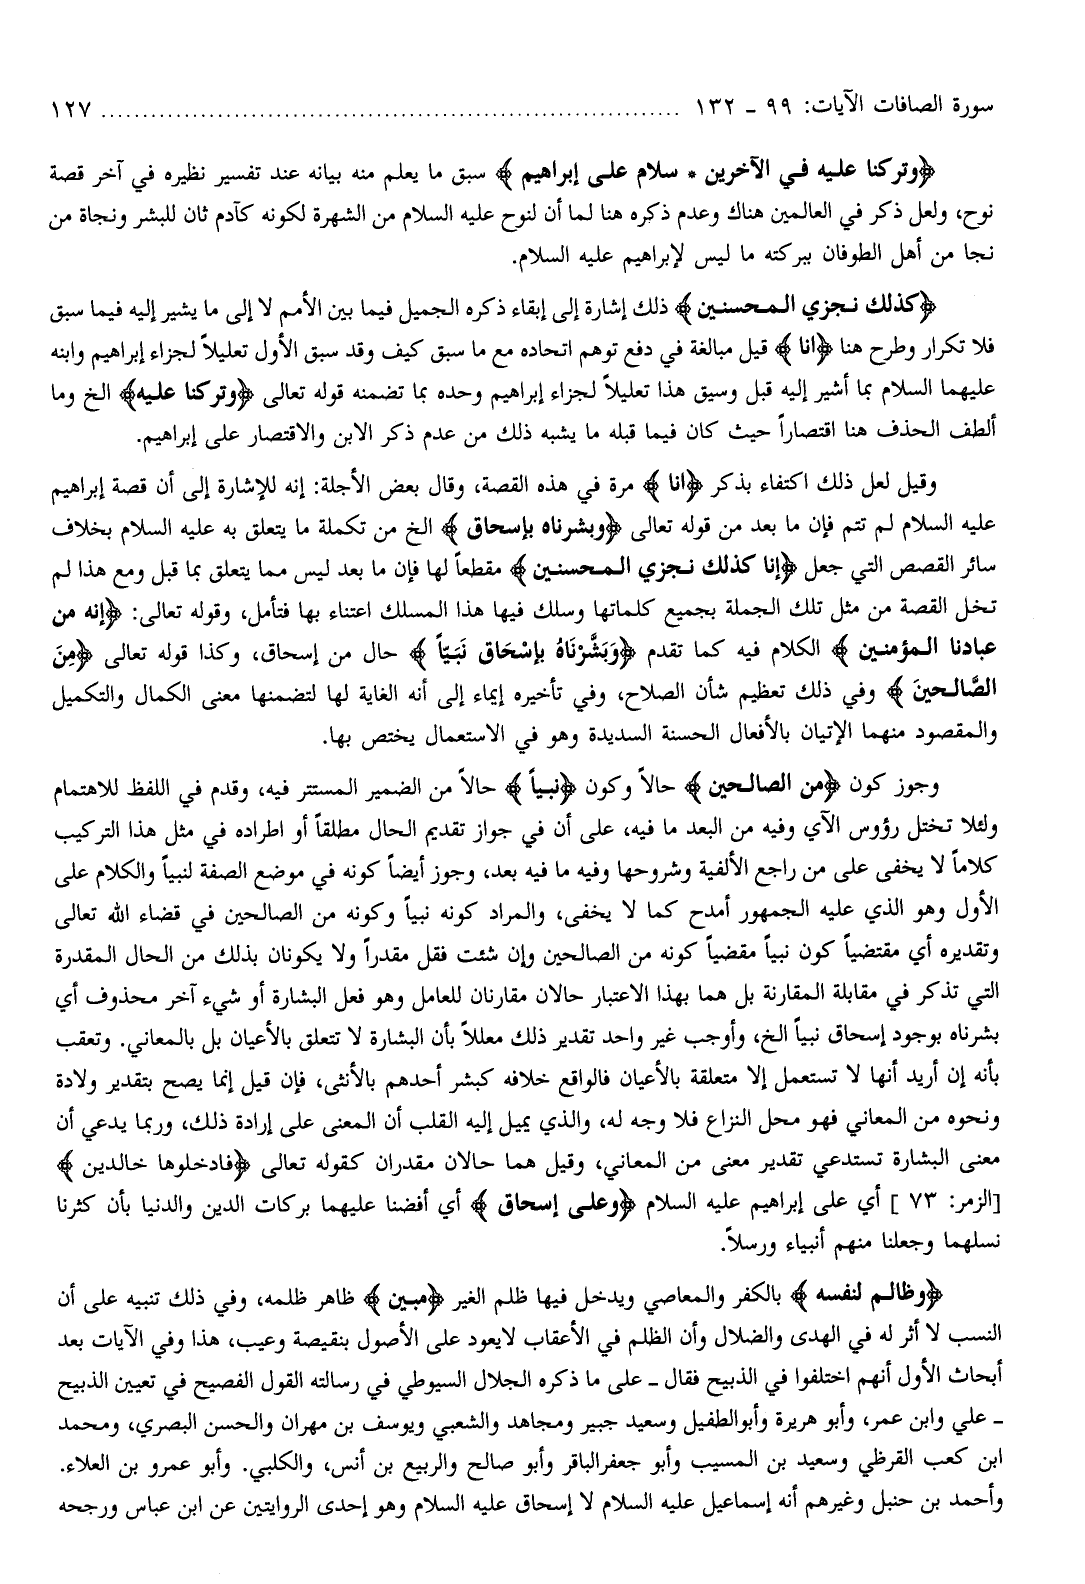 سورة الصافات الآيات: ٩٩ ـ ١٣٢ ........................................................................ ١٢٧
﴿وتركنا عليه في الآخرين * سلام على إبراهيم ﴾ سبق ما يعلم منه بيانه عند تفسير نظيره في آخر قصة
نوح، ولعل ذكر في العالمين هناك وعدم ذكره هنا لما أن لنوح عليه السلام من الشهرة لكونه كآدم ثان للبشر ونجاة من
نجا من أهل الطوفان ببركته ما ليس لإبراهيم عليه السلام.
﴿كذلك نجزي المحسنين ﴾ ذلك إشارة إلى إبقاء ذكره الجميل فيما بين الأمم لا إلى ما يشير إليه فيما سبق
فلا تكرار وطرح هنا ﴿انا ﴾ قيل مبالغة في دفع توهم اتحاده مع ما سبق كيف وقد سبق الأول تعليلاً لجزاء إبراهيم وابنه
عليهما السلام بما أشير إليه قبل وسيق هذا تعليلاً لجزاء إبراهيم وحده بما تضمنه قوله تعالى ﴿وتركنا عليه﴾ الخ وما
ألطف الحذف هنا اقتصاراً حيث كان فيما قبله ما يشبه ذلك من عدم ذكر الابن والاقتصار على إبراهيم.
وقيل لعل ذلك اكتفاء بذكر ﴿انا ﴾ مرة في هذه القصة، وقال بعض الأجلة: إنه للإشارة إلى أن قصة إبراهيم
عليه السلام لم تتم فإن ما بعد من قوله تعالى ﴿وبشرناه بإسحاق ﴾ الخ من تكملة ما يتعلق به عليه السلام بخلاف
سائر القصص التي جعل ﴿إنا كذلك نجزي المحسنين ﴾ مقطعاً لها فإن ما بعد ليس مما يتعلق بما قبل ومع هذا لم
تخل القصة من مثل تلك الجملة بجميع كلماتها وسلك فيها هذا المسلك اعتناء بها فتأمل، وقوله تعالى: ﴿إنه من
عبادنا المؤمنين ﴾ الكلام فيه كما تقدم ﴿وَبَشَّرْنَاهُ بإسْحَاق نَبَيّاً ﴾ حال من إسحاق، وكذا قوله تعالى ﴿مِنَ
الصَّالحينَ ﴾ وفي ذلك تعظيم شأن الصلاح، وفي تأخيره إيماء إلى أنه الغاية لها لتضمنها معنى الكمال والتكميل
والمقصود منهما الإتيان بالأفعال الحسنة السديدة وهو في الاستعمال يختص بها.
وجوز كون ﴿من الصالحين ﴾ حالاً وكون ﴿نبياً ﴾ حالاً من الضمير المستتر فيه، وقدم في اللفظ للاهتمام
ولئلا تختل رؤوس الآي وفيه من البعد ما فيه، على أن في جواز تقديم الحال مطلقاً أو اطراده في مثل هذا التركيب
كلاماً لا يخفى على من راجع الألفية وشروحها وفيه ما فيه بعد، وجوز أيضاً كونه في موضع الصفة لنبياً والكلام على
الأول وهو الذي عليه الجمهور أمدح كما لا يخفى، والمراد كونه نبياً وكونه من الصالحين في قضاء الله تعالى
وتقديره أي مقتضياً كون نبياً مقضياً كونه من الصالحين وإن شئت فقل مقدراً ولا يكونان بذلك من الحال المقدرة
التي تذكر في مقابلة المقارنة بل هما بهذا الاعتبار حالان مقارنان للعامل وهو فعل البشارة أو شيء آخر محذوف أي
بشرناه بوجود إسحاق نبياً الخ، وأوجب غير واحد تقدير ذلك معللاً بأن البشارة لا تتعلق بالأعيان بل بالمعاني. وتعقب
بأنه إن أريد أنها لا تستعمل إلا متعلقة بالأعيان فالواقع خلافه كبشر أحدهم بالأنثى، فإن قيل إنما يصح بتقدير ولادة
ونحوه من المعاني فهو محل النزاع فلا وجه له، والذي يميل إليه القلب أن المعنى على إرادة ذلك، وربما يدعي أن
معنى البشارة تستدعي تقدير معنى من المعاني، وقيل هما حالان مقدران كقوله تعالى ﴿فادخلوها خالدين ﴾
[الزمر: ٧٣ ] أي على إبراهيم عليه السلام ﴿وعلى إسحاق ﴾ أي أفضنا عليهما بركات الدين والدنيا بأن كثرنا
نسلهما وجعلنا منهم أنبياء ورسلاً.
﴿وظالم لنفسه ﴾ بالكفر والمعاصي ويدخل فيها ظلم الغير ﴿مبين ﴾ ظاهر ظلمه، وفي ذلك تنبيه على أن
النسب لا أثر له في الهدى والضلال وأن الظلم في الأعقاب لايعود على الأصول بنقيصة وعيب، هذا وفي الآيات بعد
أبحاث الأول أنهم اختلفوا في الذبيح فقال ـ على ما ذكره الجلال السيوطي في رسالته القول الفصيح في تعيين الذبيح
ـ علي وابن عمر، وأبو هريرة وأبوالطفيل وسعيد جبير ومجاهد والشعبي ويوسف بن مهران والحسن البصري، ومحمد
ابن كعب القرظي وسعيد بن المسيب وأبو جعفرالباقر وأبو صالح والربيع بن أنس، والكلبي. وأبو عمرو بن العلاء.
وأحمد بن حنبل وغيرهم أنه إسماعيل عليه السلام لا إسحاق عليه السلام وهو إحدى الروايتين عن ابن عباس ورجحه